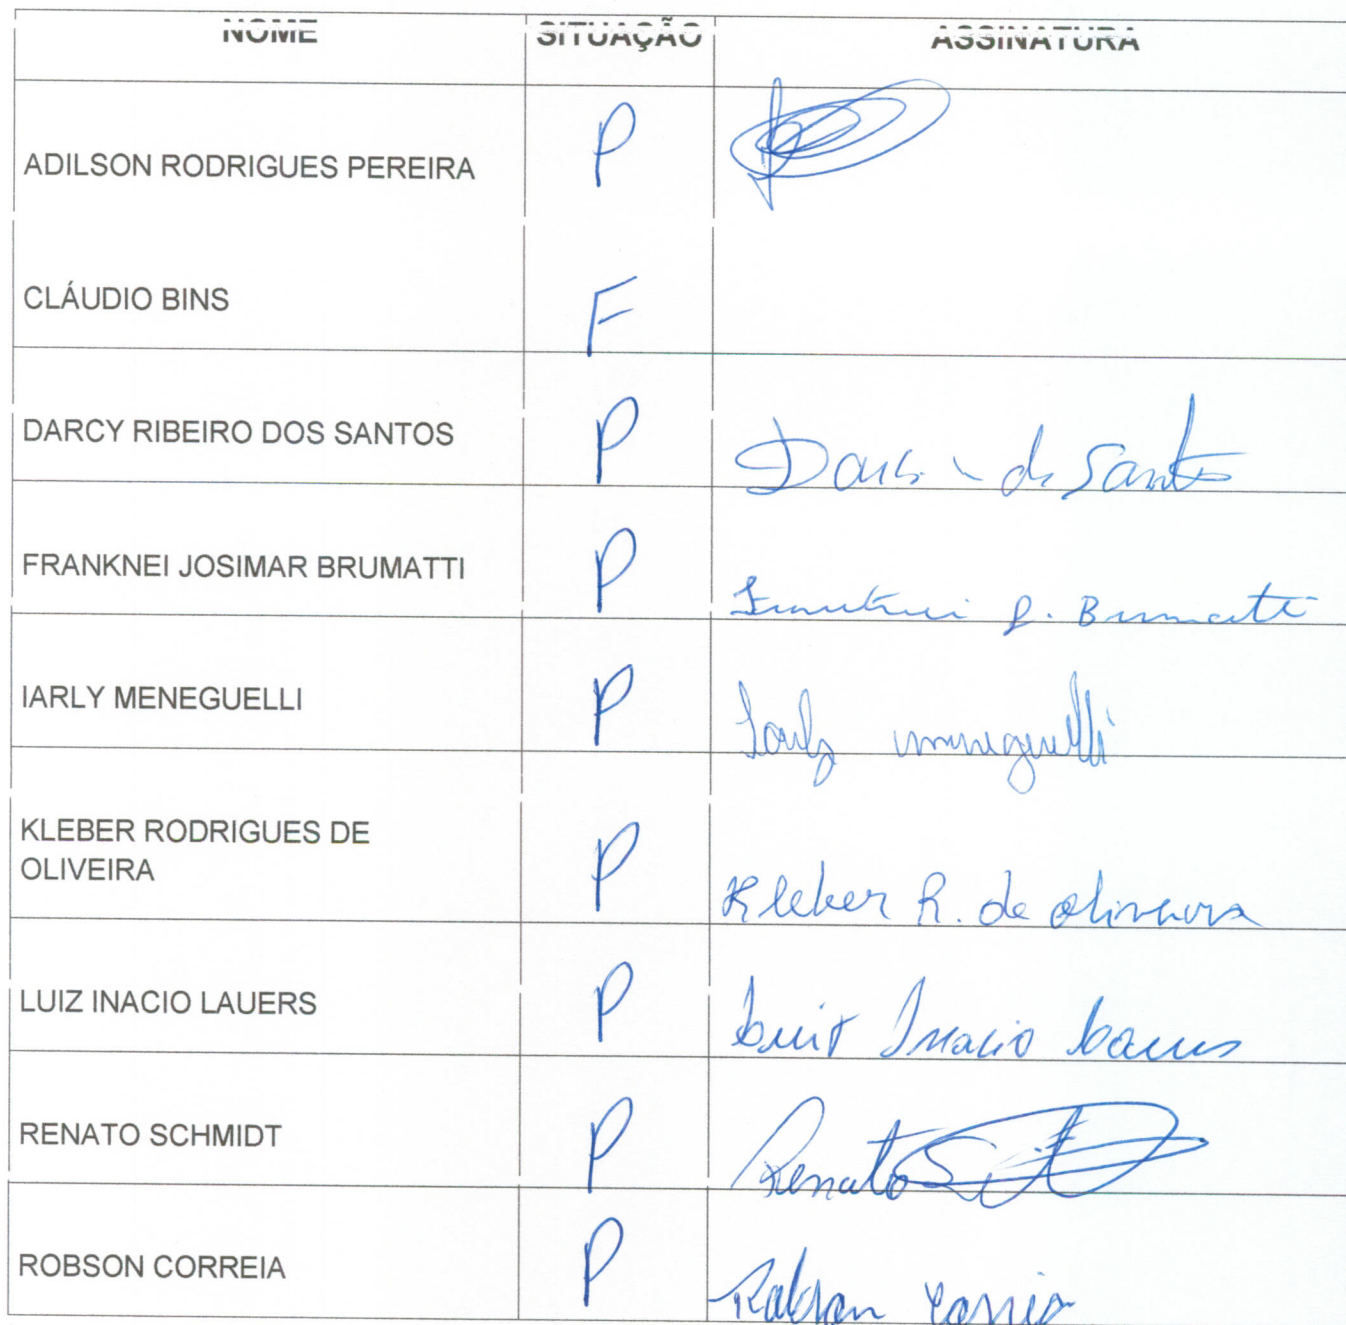 NOME SITUAÇÃO ASSINATURA
ADILSON RODRIGUES PEREIRA P
CLÁUDIO BINS F
DARCY RIBEIRO DOS SANTOS P Darci de Santos
FRANKNEI JOSIMAR BRUMATTI P Franknei J. Brumatti
IARLY MENEGUELLI P Iarly meneguelli
KLEBER RODRIGUES DE
OLIVEIRA P Kleber R. de oliveira
LUIZ INACIO LAUERS P Luiz Inacio Lauers
RENATO SCHMIDT P Renato
ROBSON CORREIA P Robson Correia